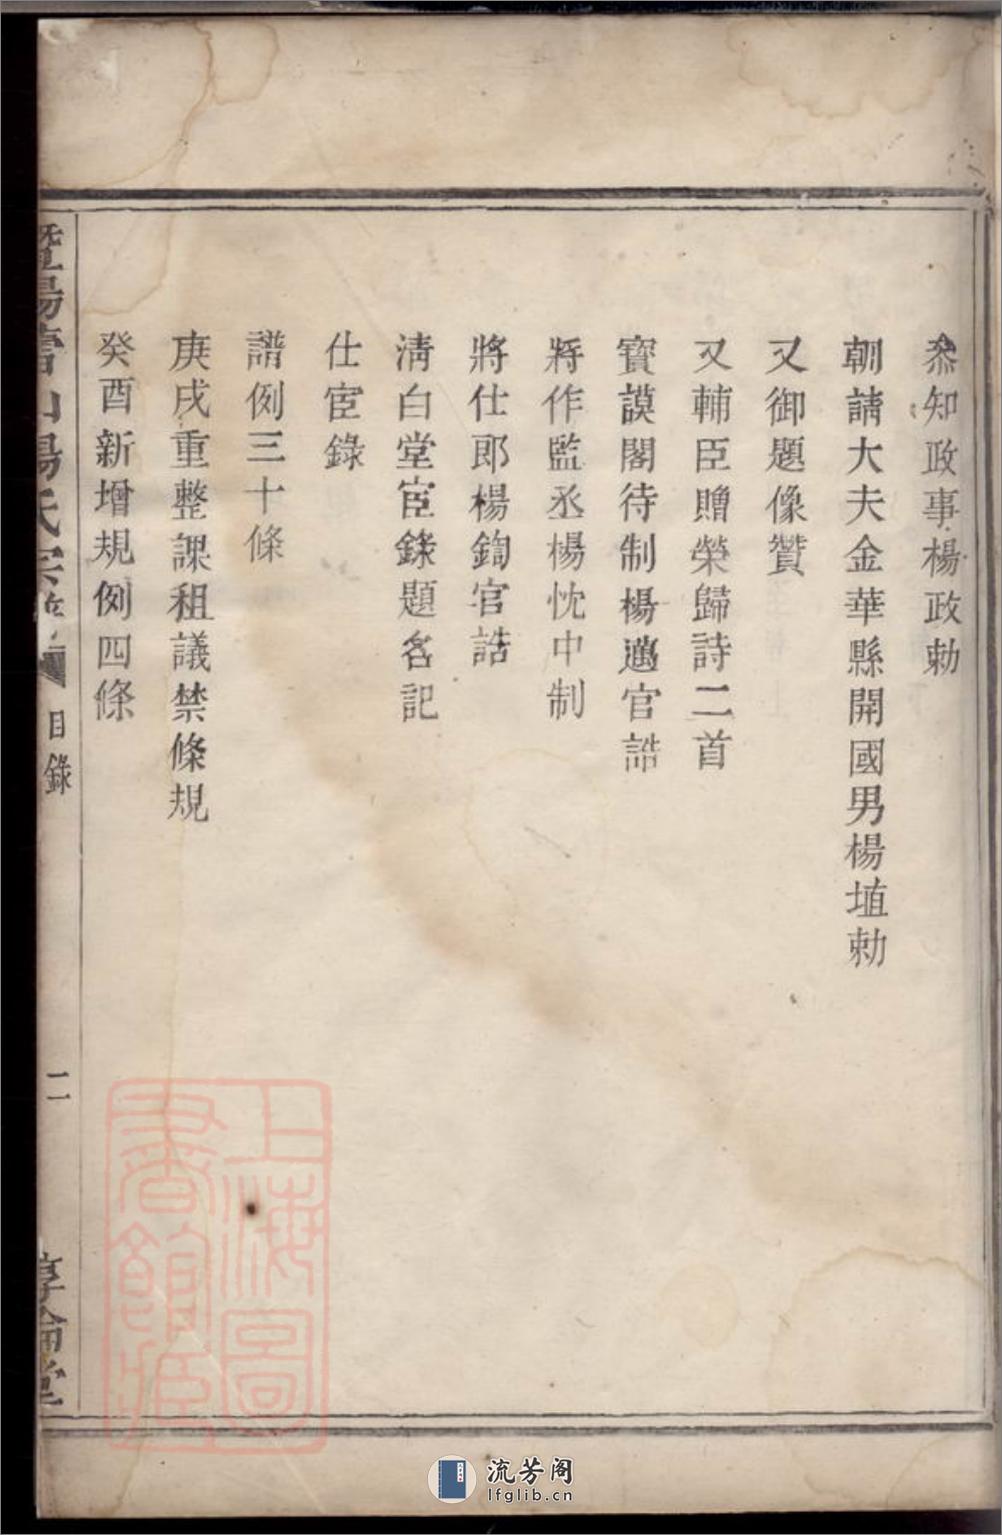 叅知政事楊政勅
朝請大夫金華縣開國男楊埴勅
又御題像贊
又輔臣贈榮歸詩二首
寳謨閣待制楊邁官誥
將作監丞楊忱中制
將仕郎楊鍧官誥
淸白堂宦錄題名記
仕宦錄
譜例三十條
庚戌重整課租議禁條規
癸酉新增規例四條
暨陽山楊氏宗譜
目錄
二
惇倫堂
上海圖書館藏
流芳阁
lfglib.cn